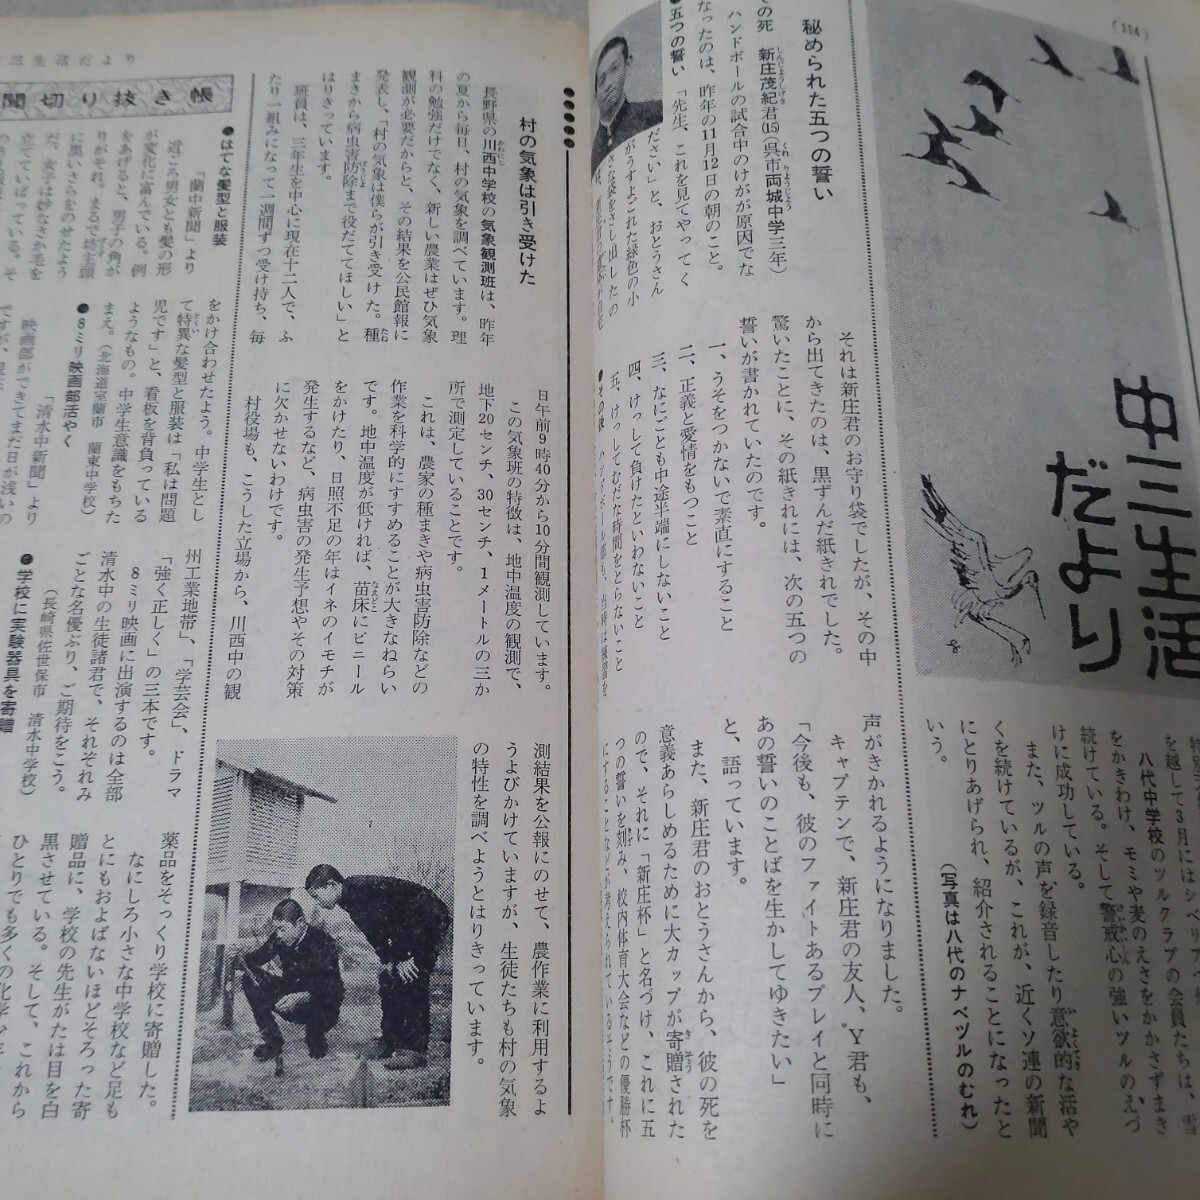 (114)
中三生活
だより
を越して3月にはシベリア
八代中学校のツルクラブの会員たちは、雪
をかきわけ、モミや麦のえさをかかさずまき
続けている。そして警戒心の強いツルのえづ
けに成功している。
また、ツルの声を録音したり意欲的な活や
くを続けているが、これが、近くソ連の新聞
にとりあげられ、紹介されることになったと
いう。
(写真は八代のナベヅルのむれ)
秘められた五つの誓い
その死 新庄茂紀君(15)(呉市両城中学三年)
ハンドボールの試合中のけがが原因でな
なったのは、昨年の11月12日の朝のこと。
●五つの誓い 「先生、これを見てやってく
ださい」と、おとうさん
がうすよごれた緑色の小
さな袋をさし出したの
それは新庄君のお守り袋でしたが、その中
から出てきたのは、黒ずんだ紙きれでした。
驚いたことに、その紙きれには、次の五つの
誓いが書かれていたのです。
一、うそをつかないで素直にすること
二、正義と愛情をもつこと
三、なにごとも中途半端にしないこと
四、けっして負けたといわないこと
五、けっしてむだな時間をとらないこと
声がきかれるようになりました。
キャプテンで、新庄君の友人、Y君も、
「今後も、彼のファイトあるプレイと同時に
あの誓いのことばを生かしてゆきたい」
と、語っています。
また、新庄君のおとうさんから、彼の死を
意義あらしめるために大カップが寄贈された
ので、それに「新庄杯」と名づけ、これに五
つの誓いを刻み、校内体育大会などの優勝杯
にすることなどが考えられているそうです。
三生活だより
村の気象は引き受けた
長野県の川西中学校の気象観測班は、昨年
の夏から毎日、村の気象を調べています。理
科の勉強だけでなく、新しい農業はぜひ気象
観測が必要だからと、その結果を公民館報に
発表し、「村の気象は僕らが引き受けた。種
まきから病虫害防除まで役だててほしい」と
はりきっています。
班員は、三年生を中心に現在十二人で、ふ
たり一組みになって一週間ずつ受け持ち、毎
日午前9時40分から10分間観測しています。
この気象班の特徴は、地中温度の観測で、
地下20センチ、30センチ、1メートルの三か
所で測定していることです。
これは、農家の種まきや病虫害防除などの
作業を科学的にすすめることが大きなねらい
です。地中温度が低ければ、苗床にビニール
をかけたり、日照不足の年はイネのイモチが
発生するなど、病虫害の発生予想やその対策
に欠かせないわけです。
村役場も、こうした立場から、川西中の観
測結果を公報にのせて、農作業に利用するよ
うよびかけていますが、生徒たちも村の気象
の特性を調べようとはりきっています。
聞切り抜き帳
●はてな髪型と服装
「蘭中新聞」より
近ごろ男女とも髪の形
が変化に富んでいる。例
をあげると、男子の角が
りがそれ。まるで坊主頭
に黒いさらをのせたよう
だ。女子は妙なさか毛を
立てていばっている。そ
をかけ合わせたよう。中学生とし
て特異な髪型と服装は「私は問題
児です」と、看板を背負っている
ようなもの。中学生意識をもちた
まえ。(北海道室蘭市 蘭東中学校)
●8ミリ映画部活やく
「清水中新聞」より
映画部ができてまだ日が浅いの
州工業地帯」、「学芸会」、ドラマ
「強く正しく」の三本です。
8ミリ映画に出演するのは全部
清水中の生徒諸君で、それぞれみ
ごとな名優ぶり、ご期待をこう。
(長崎県佐世保市 清水中学校)
●学校に実験器具を寄贈
薬品をそっくり学校に寄贈した。
なにしろ小さな中学校など足も
とにもおよばないほどそろった寄
贈品に、学校の先生がたは目を白
黒させている。そして、これから
ひとりでも多くの化学